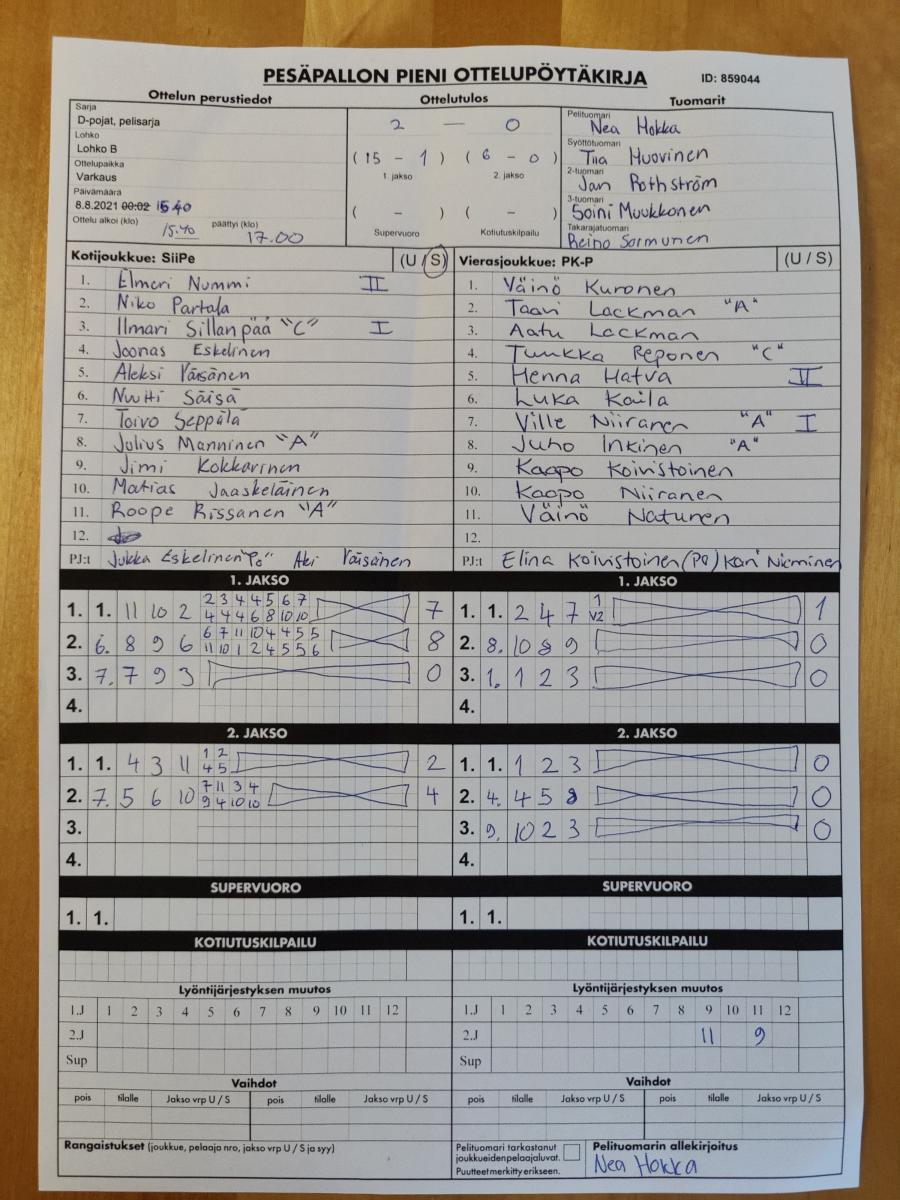 PESÄPALLON PIENI OTTELUPÖYTÄKIRJA ID: 859044
Ottelun perustiedot Ottelutulos Tuomarit
Sarja
D-pojat, pelisarja
Lohko
Lohko B
Ottelupaikka
Varkaus
Päivämäärä
8.8.2021 00:02 15.40
Ottelu alkoi (klo) 15.40 päättyi (klo) 17.00
2 — 0
( 15 - 1 ) ( 6 - 0 )
1. jakso 2. jakso
( - ) ( - )
Supervuoro Kotiutuskilpailu
Pelituomari
Nea Hokka
Syöttötuomari
Tiia Huovinen
2-tuomari
Jan Rothström
3-tuomari
Soini Muukkonen
Takarajatuomari
Reino Sormunen
Kotijoukkue: SiiPe (U / S)
1. Elmeri Nummi II
2. Niko Partala
3. Ilmari Sillanpää "C" I
4. Joonas Eskelinen
5. Aleksi Väisänen
6. Nuutti Säisä
7. Toivo Seppälä
8. Julius Manninen "A"
9. Jimi Kokkarinen
10. Matias Jaaskeläinen
11. Roope Rissanen "A"
12.
PJ:t Jukka Eskelinen "Po" Aki Väisänen
Vierasjoukkue: PK-P (U / S)
1. Väinö Kuronen
2. Taavi Lackman "A"
3. Aatu Lackman
4. Tuukka Reponen "C"
5. Henna Hatva II
6. Luka Kaila
7. Ville Niiranen "A" I
8. Juho Inkinen "A"
9. Kaapo Koivistoinen
10. Kaapo Niiranen
11. Väinö Natunen
12.
PJ:t Elina Koivistoinen (PO) Kari Nieminen
1. JAKSO
1. 1. 11 10 2 2 3 4 4 5 6 7 7
4 4 4 6 8 10 10
2. 6. 8 9 6 6 7 11 10 4 4 5 5 8
11 10 1 2 4 5 5 6
3. 7. 7 9 3 0
4.
1. JAKSO
1. 1. 2 4 7 1 1
V2
2. 8. 10 8 9 0
3. 1. 1 2 3 0
4.
2. JAKSO
1. 1. 4 3 11 1 2 2
4 5
2. 7. 5 6 10 7 11 3 4 4
9 4 10 10
3.
4.
2. JAKSO
1. 1. 1 2 3 0
2. 4. 4 5 8 0
3. 9. 10 2 3 0
4.
SUPERVUORO SUPERVUORO
1. 1. 1. 1.
KOTIUTUSKILPAILU KOTIUTUSKILPAILU
Lyöntijärjestyksen muutos Lyöntijärjestyksen muutos
1.J 1 2 3 4 5 6 7 8 9 10 11 12 1.J 1 2 3 4 5 6 7 8 9 10 11 12
2.J 2.J 11 9
Sup Sup
Vaihdot Vaihdot
pois tilalle Jakso vrp U / S pois tilalle Jakso vrp U / S pois tilalle Jakso vrp U / S pois tilalle Jakso vrp U / S
Rangaistukset (joukkue, pelaaja nro, jakso vrp U / S ja syy)
Pelituomari tarkastanut
joukkueidenpelaajaluvat.
Puutteet merkitty erikseen.
Pelituomarin allekirjoitus
Nea Hokka